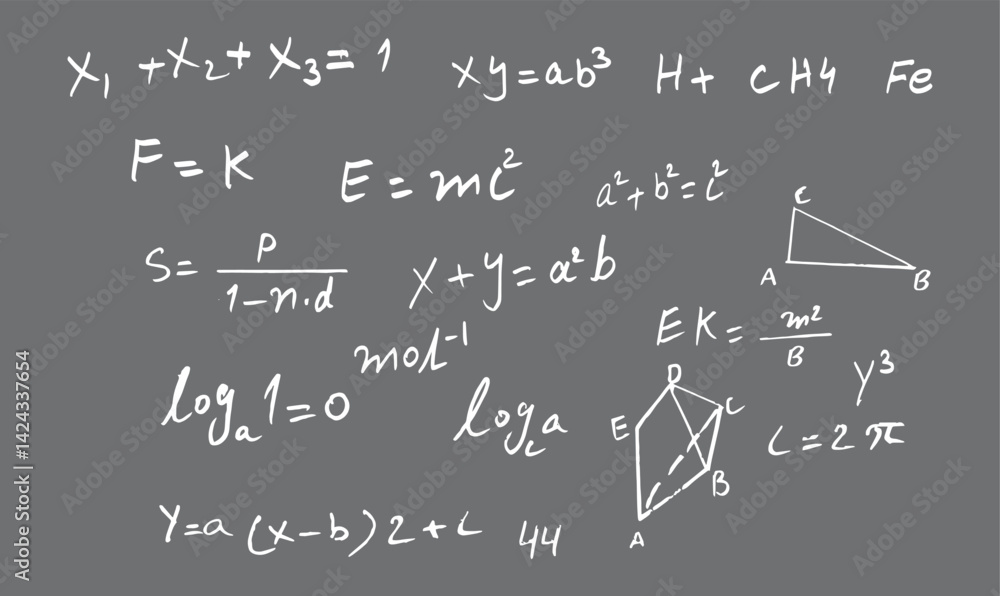 X₁ + X₂ + X₃ = 1
xy = ab³
H+
CH4
Fe
F = K
E = mc²
a² + b² = c²
C
A
B
S = P / 1 - n · d
x + y = a²b
EK = m² / B
mol⁻¹
y³
logₐ1 = 0
log꜀a
D
E
C
B
A
c = 2π
Y = a (x - b) 2 + c
44
Adobe Stock | #1424337654
Adobe Stock